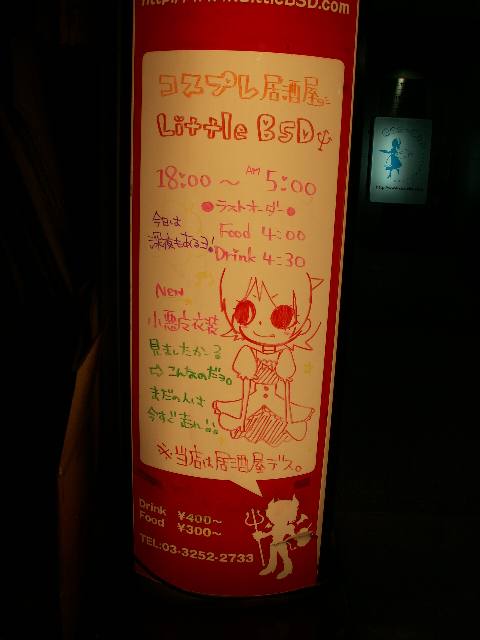 コスプレ居酒屋
Little BSD
18:00～AM5:00
●ラストオーダー●
Food 4:00
Drink 4:30
今日は
深夜もあるヨ!
New
小悪魔衣装
見ましたか?
⇨こんなのだョ。
まだの人は
今すぐ走れ!!
※当店は居酒屋デス。
Drink ¥400～
Food ¥300～
TEL:03-3252-2733